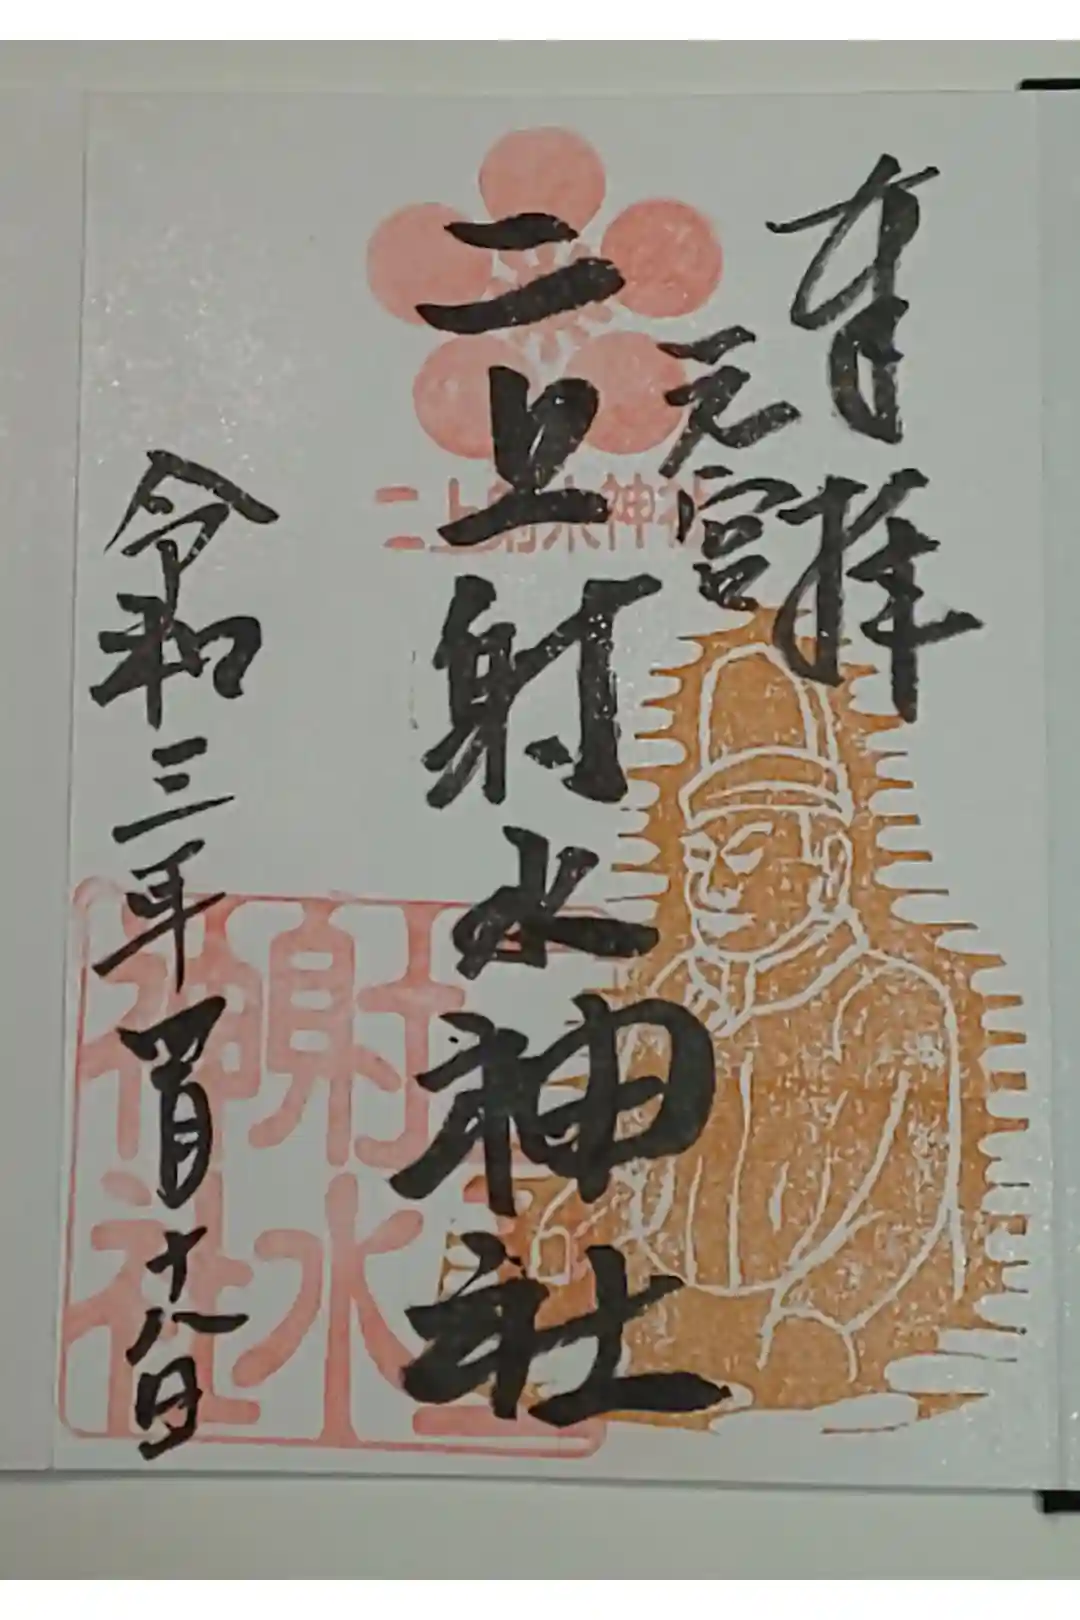 奉拝
元宮
二上射水神社
二上射水神社
令和三年四月十八日
二上射水神社